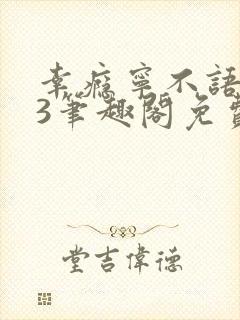 幸瘾宁不語
3筆趣閣免費
堂吉偉德